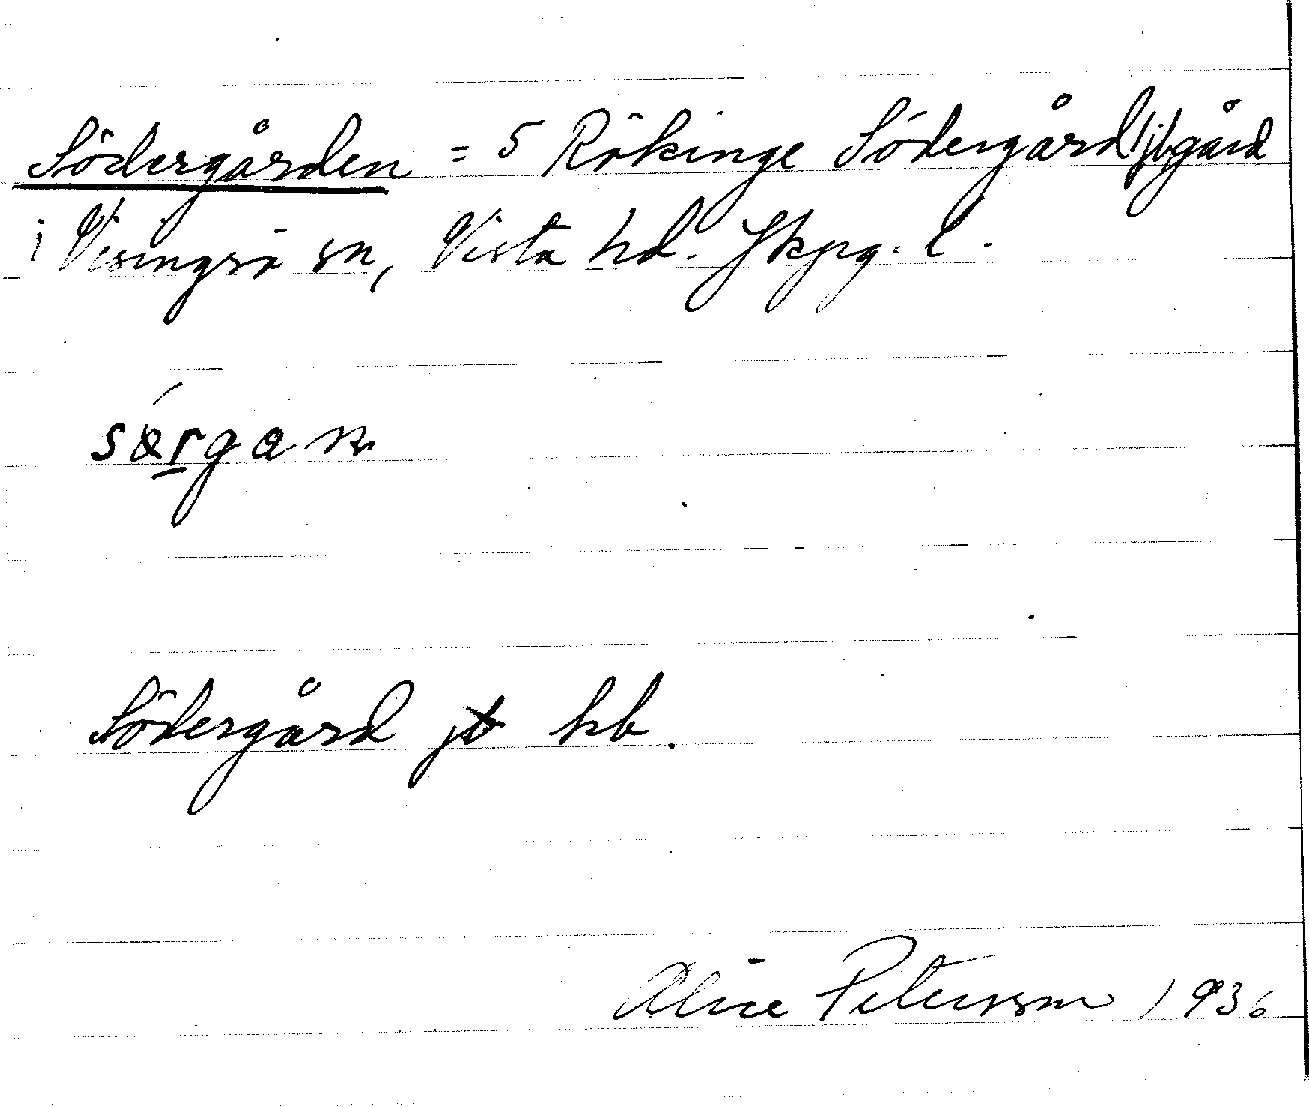 Södergården = 5 Rökinge Södergård, jbgård
i Visingsö sn, Vista hd. Jkpg. l.
særgan
Södergård hb.
Alice Petersson 1936